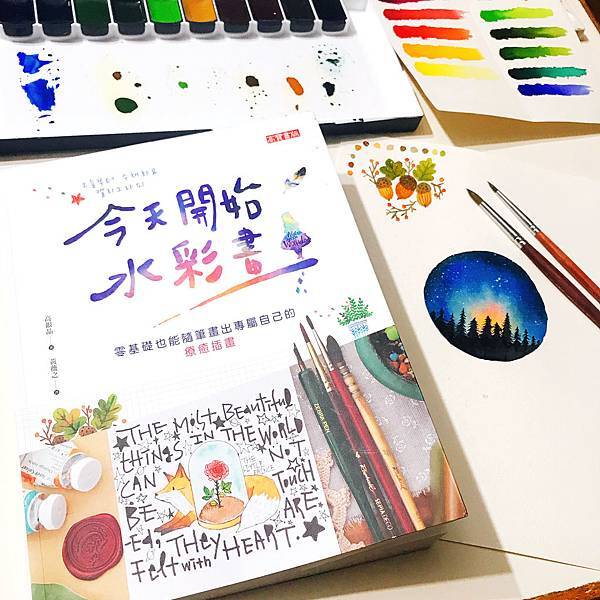 高寶書版
今天開始
水彩畫
零基礎也能隨筆畫出專屬自己的
療癒插畫
THE MOST BEAUTIFUL
THINGS IN THE WORLD
CAN NOT
BE TOUCH
ED, THEY ARE
FELT with HEART.